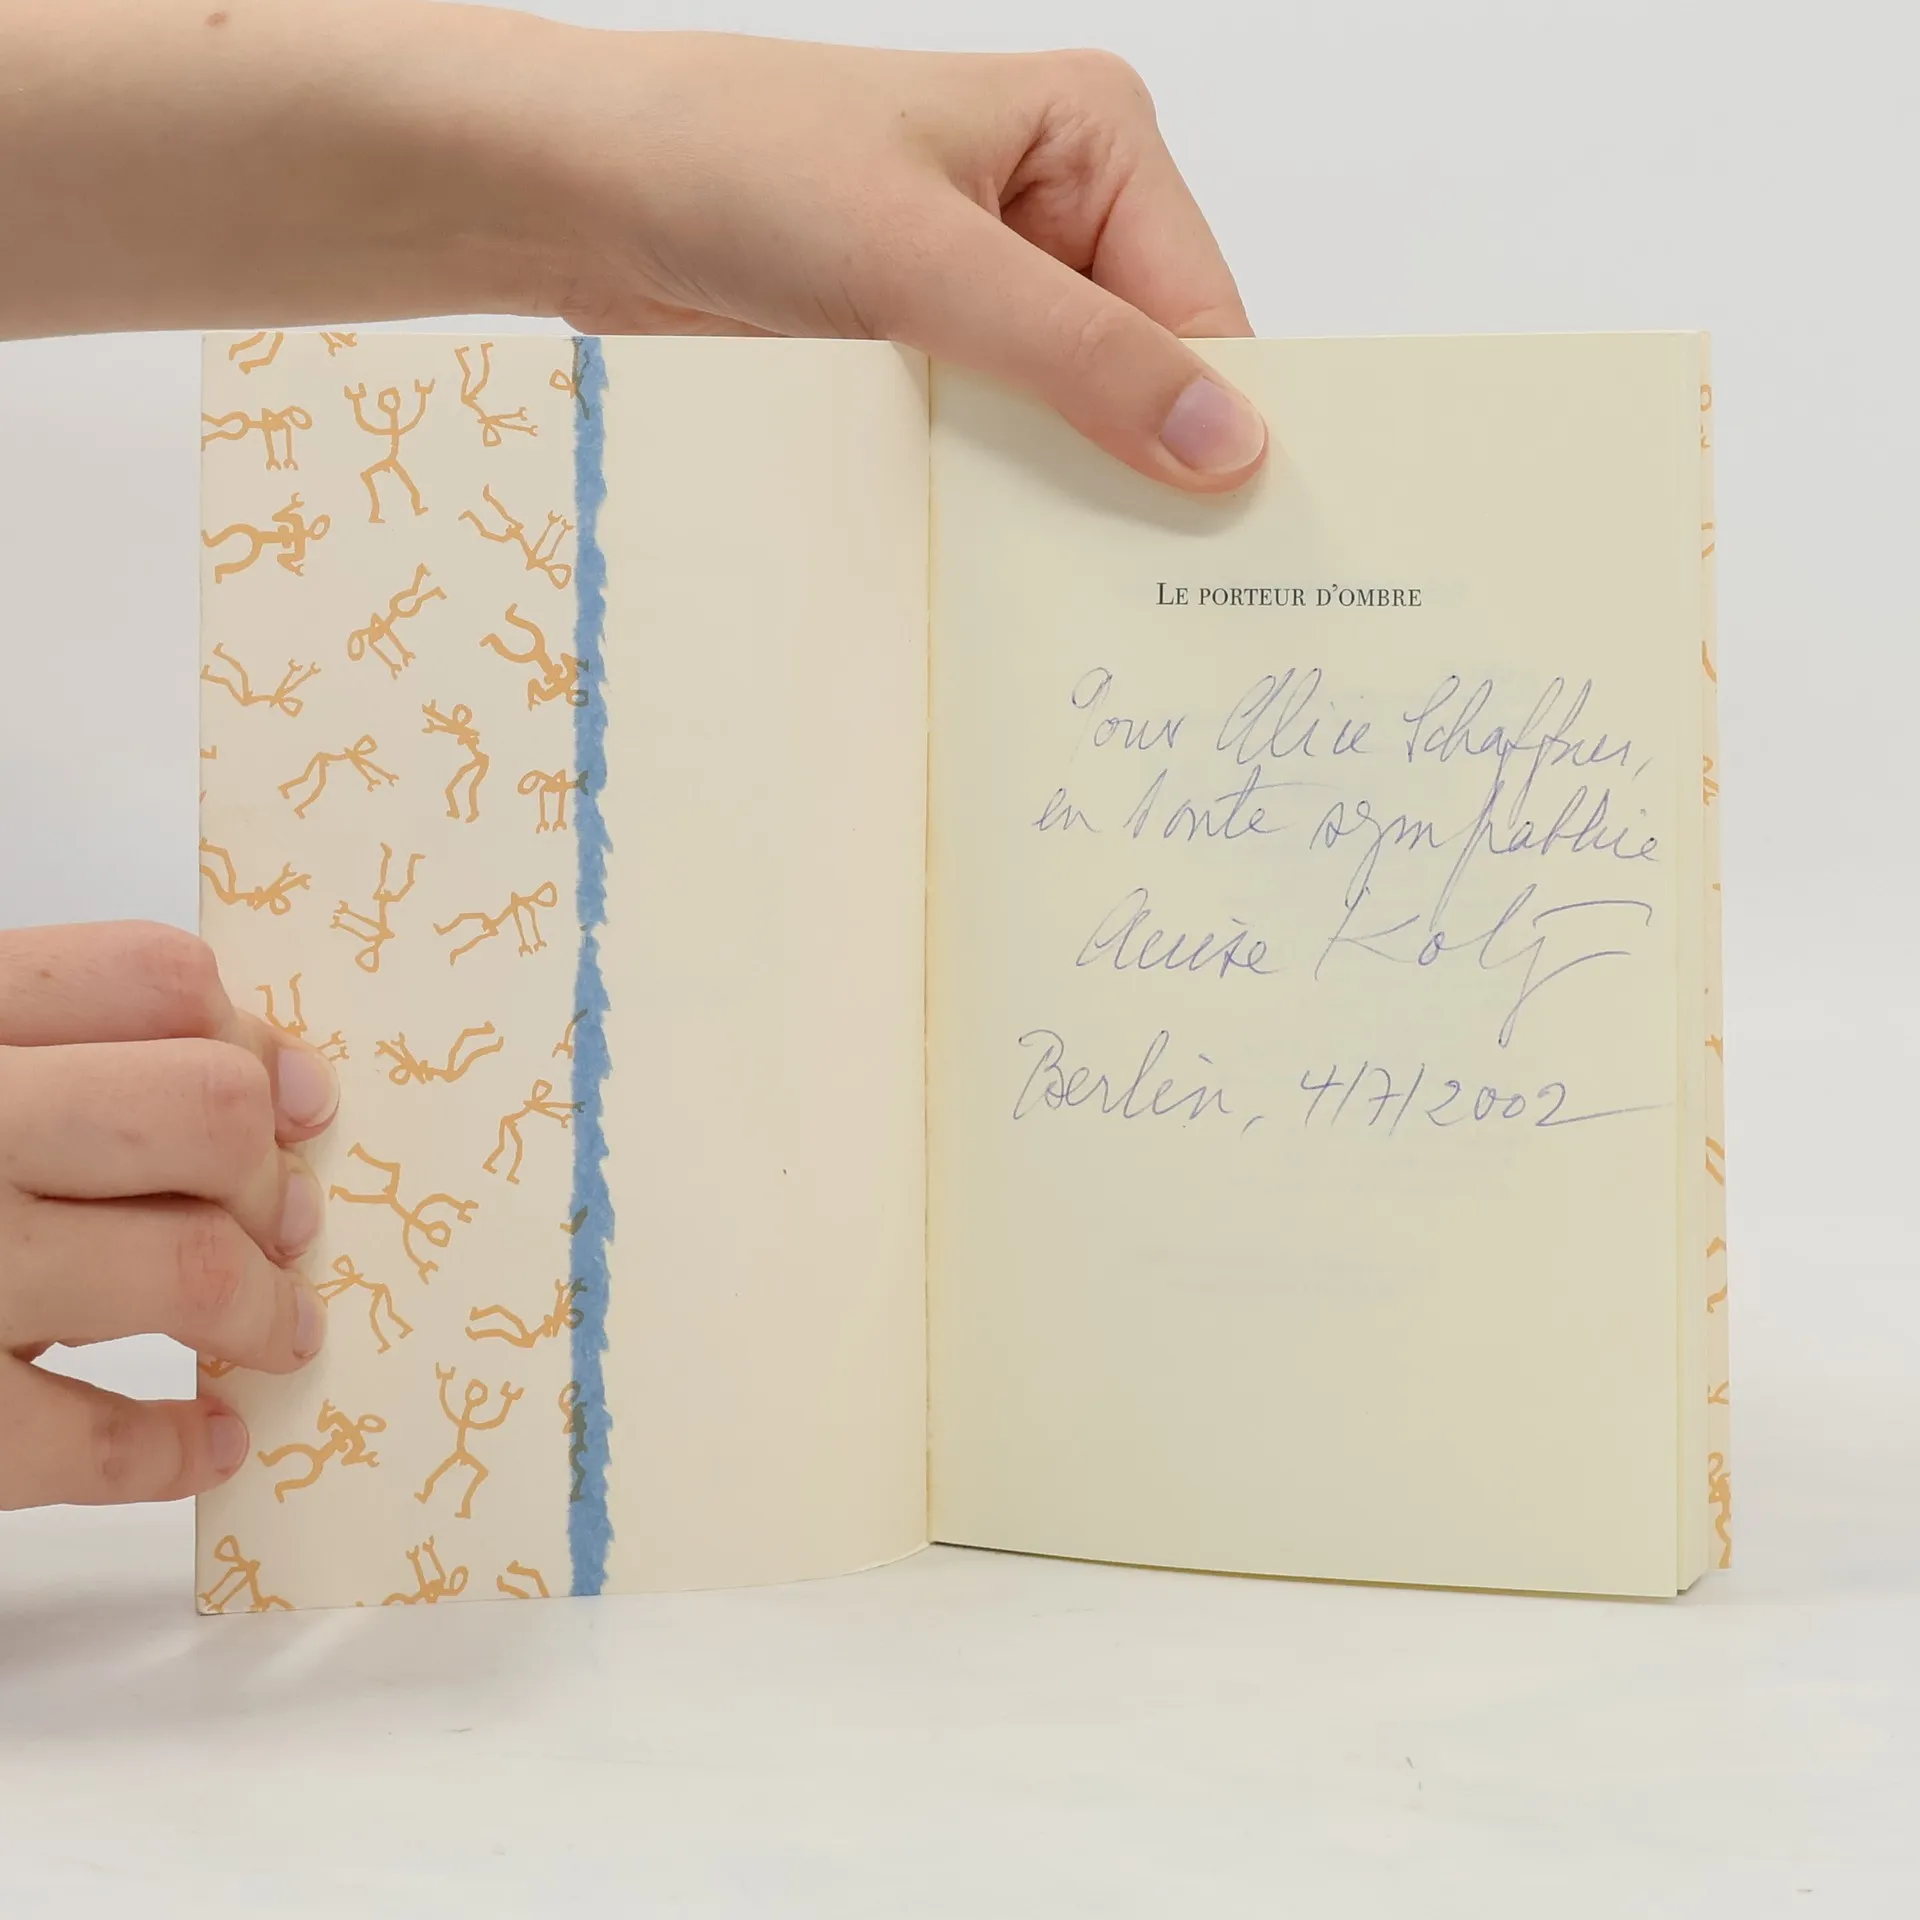 Le porteur d'ombre
Pour Alice Schaffner,
en toute sympathie
Anise Koltz
Berlin, 4/7/2002